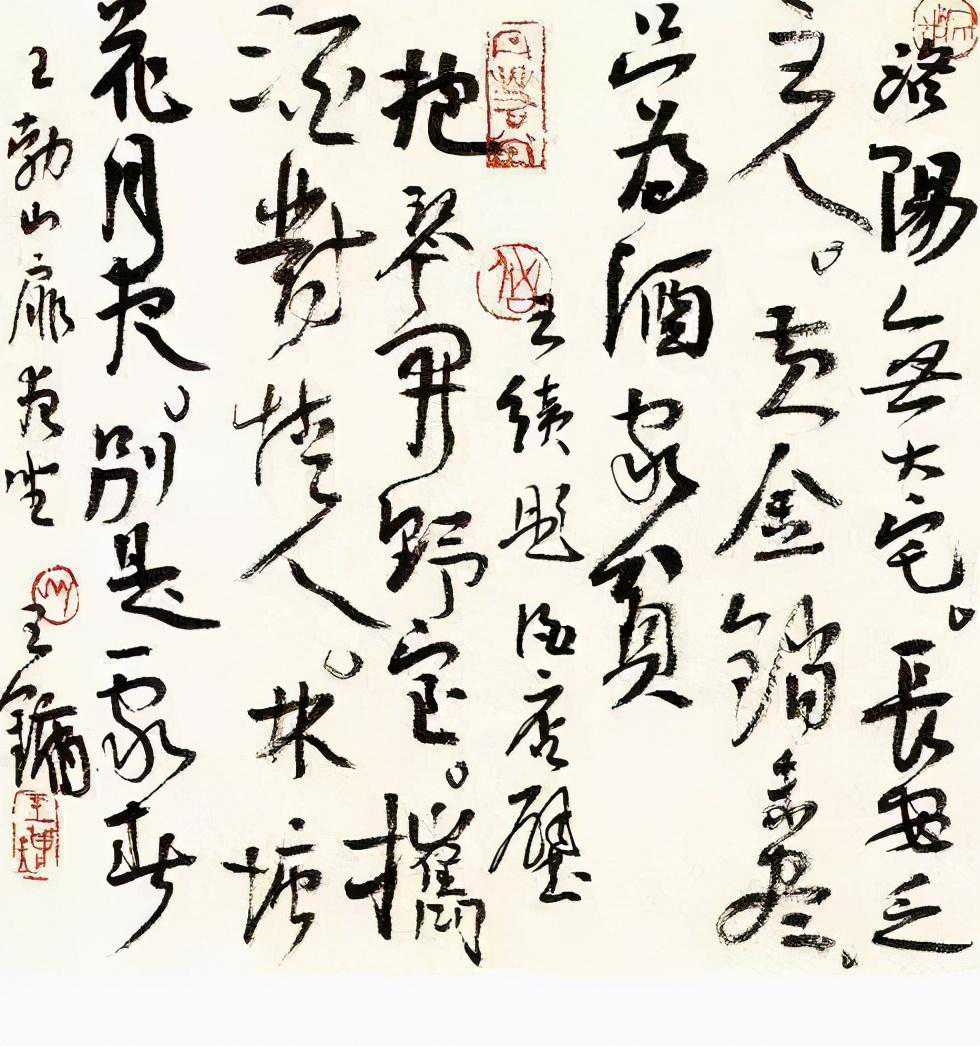 洛陽無大宅。長安乏
主人。黃金銷未盡、
只為酒家貧
王績題酒店壁
抱琴開野室。攜
酒對情人。林塘
花月夜。別是一家春
王勃山扉夜坐 王鏞